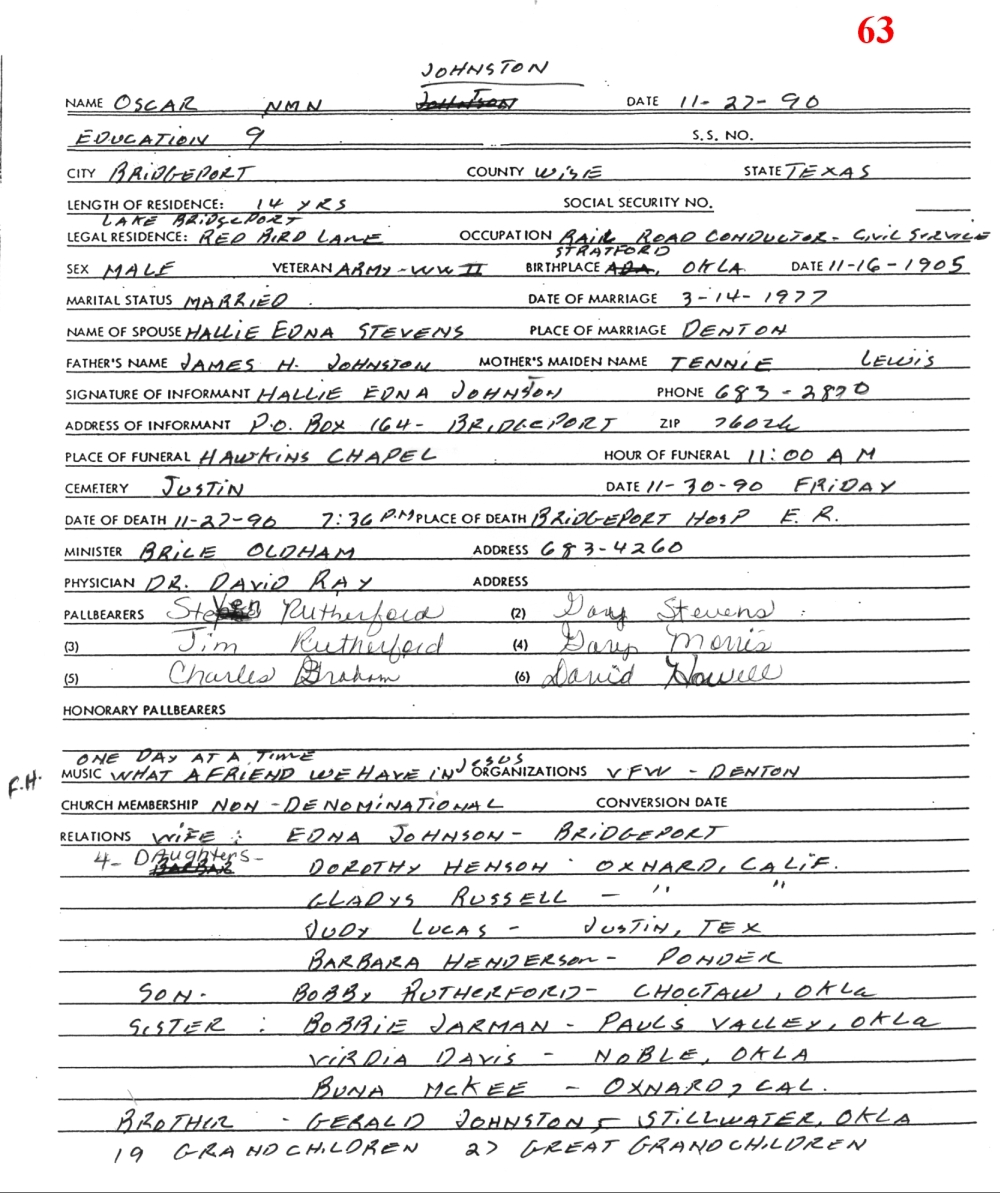 63
JOHNSTON
NAME OSCAR NMN DATE 11-27-90
EDUCATION 9 S.S. NO.
CITY BRIDGEPORT COUNTY WISE STATE TEXAS
LENGTH OF RESIDENCE: 14 YRS SOCIAL SECURITY NO.
LAKE BRIDGEPORT
LEGAL RESIDENCE: RED BIRD LANE OCCUPATION RAIL ROAD CONDUCTOR- CIVIL SERVICE
STRATFORD
SEX MALE VETERAN ARMY-WW II BIRTHPLACE ADA, OKLA. DATE 11-16-1905
MARITAL STATUS MARRIED. DATE OF MARRIAGE 3-14-1977
NAME OF SPOUSE HALLIE EDNA STEVENS PLACE OF MARRIAGE DENTON
FATHER'S NAME JAMES H. JOHNSTON MOTHER'S MAIDEN NAME TENNIE LEWIS
SIGNATURE OF INFORMANT HALLIE EDNA JOHNSTON PHONE 683-2870
ADDRESS OF INFORMANT P.O. BOX 164- BRIDGEPORT ZIP 76026
PLACE OF FUNERAL HAWKINS CHAPEL HOUR OF FUNERAL 11:00 A M
CEMETERY JUSTIN DATE 11-30-90 FRIDAY
DATE OF DEATH 11-27-90 7:36 P.M PLACE OF DEATH BRIDGEPORT HOSP E.R.
MINISTER BRICE OLDHAM ADDRESS 683-4260
PHYSICIAN DR. DAVID RAY ADDRESS
PALLBEARERS Steven Rutherford (2) Gary Stevens
(3) Jim Rutherford (4) Gary Morris
(5) Charles Graham (6) David Howell
HONORARY PALLBEARERS
ONE DAY AT A TIME
F.H. MUSIC WHAT A FRIEND WE HAVE IN JESUS ORGANIZATIONS VFW - DENTON
CHURCH MEMBERSHIP NON-DENOMINATIONAL CONVERSION DATE
RELATIONS WIFE: EDNA JOHNSON- BRIDGEPORT
4- DAughters- DOROTHY HENSON OXNARD, CALIF.
GLADYS RUSSELL - " "
JUDY LUCAS - JUSTIN, TEX
BARBARA HENDERSON- PONDER
SON- BOBBY RUTHERFORD- CHOCTAW, OKLA
SISTER: BOBBIE JARMAN - PAULS VALLEY, OKLA
VIRDIA DAVIS - NOBLE, OKLA
BUNA MCKEE - OXNARD, CAL.
BROTHER - GERALD JOHNSTON- STILLWATER, OKLA
19 GRANDCHILDREN 27 GREAT GRANDCHILDREN